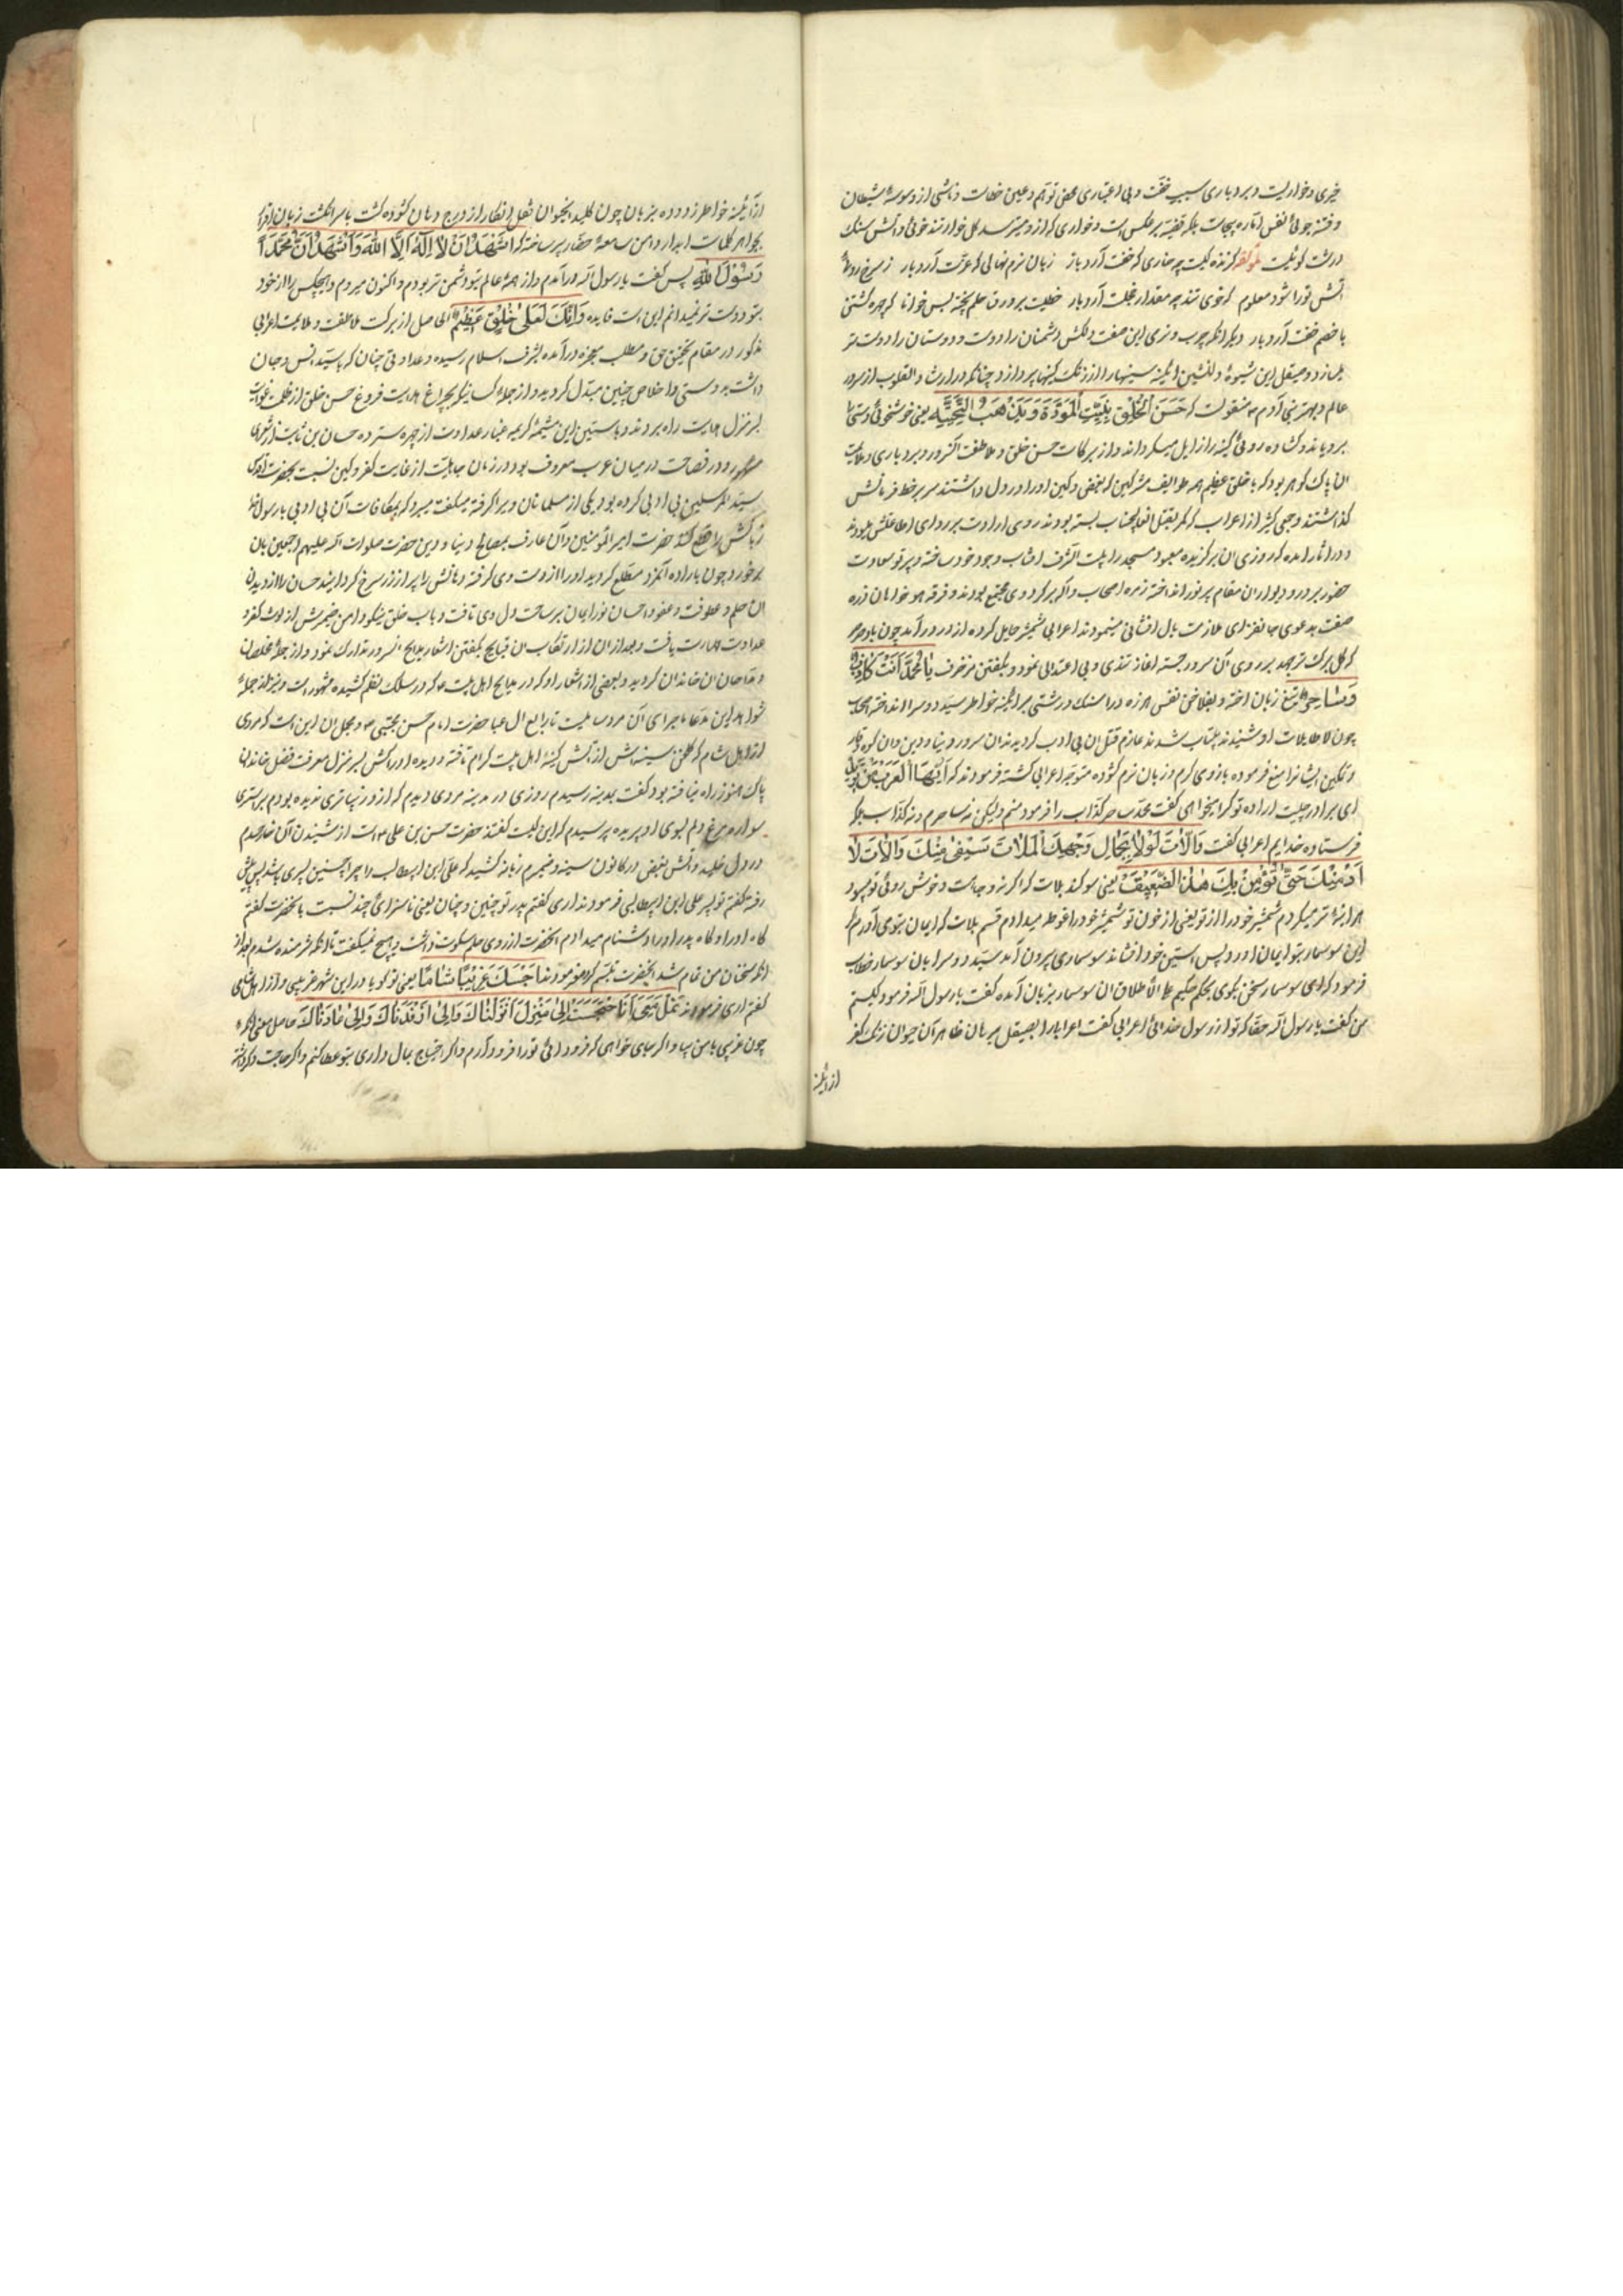 خیری و خواریست و بردباری سبب خفت و بی اعتباری محض توهم و عین خطاست و ناشی از وسوسهٔ شیطان
و فتنه جوئی نفس اماره بیجاست بلکه قضیه بر عکس است و خواری که از و میرسد کل خوار تند خوئی و آتش سنک
درشت کوئیست لمؤلفه کزنده کیست چه خاری که خفت آرد بار زبان نرم نهالی که عزت آرد بار ز سرخ روئی
آتش تو را شود معلوم که خوی تند چه مقدار خجلت آرد بار
با خصم خفت آرد بار دیکر آنکه چرب و نرمی این صفت دلکش دشمنان را دوست و دوستان را دوست تر
میسازد و صیقل این شیوهٔ دلنشین آئینهٔ سینها را از زنک کینها پردازد چنانکه در ارشاد القلوب از سرور
عالم و بهترین بنی آدم ص منقولست که حسن الخلق یثبت المودة و یذهب یعنی خوشخوئی دوستی را
برویاند و کشاده روئی کینه را زایل میکرداند و از برکات حسن خلق و ملاطفت آنسرور و بردباری و ملایمت
آن پاک کوهر بود که با خلق عظیم همه طوایف مشرکین که بغض و کین او را در دل داشتند سر بر خط فرمانش
کذاشتند و جمعی کثیر از اعراب که کمر بقتل آنجناب بسته بودند روی ارادت بر ردای اطاعتش سودند
و در آثار آمده که روزی آن برکزیدهٔ معبود مسجد را بیت الشرف آفتاب وجود خود ساخته و پرتو سعادت
حضور بر در و دیوار آن مقام پر نور انداخته زمرهٔ اصحاب و اکابر کرد وی مجتمع بودند و فرقهٔ هوا خواهان ذره
صفت بدعوی جانفزای ملازمت بال افشانی مینمودند اعرابی شمشیر حمایل کرده از در درآمد چون باد صرصر
که کل برک تر جهد بر روی آن سرور جسته آغاز تندی و بی اعتدالی نمود و بکفتن مزخرف یا محمد انت کاذب
و ساحر تیغ زبان آخته و بفلاخن نفس هرزه درا سنک درشتی بر آئینهٔ خاطر سید دو سرا انداخته اصحاب
چون لاطایلات او شنیدند بیتاب شدند عازم قتل آن بی ادب کردیدند آن سرور دنیا و دین و آن کوه وقار
و تمکین ایشانرا منع فرموده بازوی کرم و زبان نرم کشوده متوجه اعرابی کشته فرمودند که ایها العرب من ترید
ای برادر چیست اراده تو کرا میخواهی کفت محمد ساحر کذاب را فرمود منم ولیکن نه ساحرم و نه کذاب بلکه
فرستاده خدایم اعرابی کفت واللات لولا وجهک لملات سیفی منک واللات لا
آدمنک حتی تؤمن بک هذا یعنی سوکند بلات که اکر نه وجاهت و خوش روئی تو میبود
هر آینه تر میکردم شمشیر خود را از تو یعنی از خون تو شمشیر خود را غوطه میدادم قسم بلات که ایمان بتو نمی آورم مکر
این سوسمار بتو ایمان آورد پس آستین خود افشاند سوسماری بیرون آمد سید دو سرا بآن سوسمار خطاب
فرمود که ای سوسمار سخن بکوی بحکم حکیم علی الاطلاق آن سوسمار بزبان آمده کفت یا رسول الله فرمود کیستم
من کفت یا رسول الله حقا که تو از رسول خدائی اعرابی کفت اعرابی را بصیقل برهان ظاهر آن حیوان زنک کفر
از آئینهٔ
از آئینهٔ خواطر زدوده بزبان چون کلید آنحیوان ثقل انتظار از درج دهان کشوده کشت با سر انکشت زبان اقرار
بجواهر کلمات آبدار دامن سامعهٔ حضار پر ساخته که اشهد ان لا اله الا الله و اشهد ان محمدا
رسول الله پس کفت یا رسول الله درآمدم و از همهٔ عالم بتو دشمن تر بودم و اکنون میروم و هیچکس را از خود
بتو دوست تر نمیدانم این است فایده و انک لعلی خلق عظیم الحاصل از برکت ملاطفت و ملایمت اعرابی
مذکور در مقام تحقیق حق و مطلب معجزه درآمده بشرف اسلام رسیده و عداوتی چنان که با سید انس و جان
داشت بدوستی و اخلاص چنین مبدل کردید و از جملهٔ کسانیکه بچراغ هدایت فروغ حسن خلق از ظلمت غوایت
بسر منزل هدایت راه بردند و بآستین این شیمهٔ کریمه غبار عداوت از چهره سترده حسان بن ثابت شاعری
مشهور و در فصاحت در میان عرب معروف بود در زمان جاهلیت از غایت کفر و کین نسبت بحضرت اقدس
سید المرسلین بی ادبی کرده بود یکی از مسلمانان ویرا کرفته میکفت میبرد که بمکافات آن بی ادبی با رسول خدا
زبانش را قطع کند حضرت امیر المؤمنین و آن عارف بمصالح دنیا و دین حضرت صلوات الله علیهم اجمعین بآن
برخورد چون باراده آنمرد مطلع کردید او را از دست وی کرفته دهانش را پر از زر سرخ کردانید حسان را از دیدن
آن حلم و عطوفت و عفو و احسان نور ایمان بر ساحت دل وی تافت و بآب خلق نیکو دامن ضمیرش از لوث کفر و
عداوت طهارت یافت و بعد از آن از ارتکاب آن قبایح بکفتن اشعار بمدایح آنسرور تدارک نمود و از جملهٔ مخلصان
و مداحان آن خاندان کردید و بعضی از اشعار او که در مدایح اهل بیت ع که در سلک نظم کشیده مشهور است و نیز از جملهٔ
شواهد این مدعا ماجرای آن مرد شامیست تا رابع آل عبا حضرت امام حسن مجتبی ع و مجمل آن این است که مردی
از اهل شام که کلخن سینه اش از آتش کینهٔ اهل بیت کرام تافته و دیده ادراکش بسر منزل معرفت فضل خاندان
پاک هنوز راه نیافته بود کفت بمدینه رسیدم روزی در مدینه مردی دیدم که از او زیباتری ندیده بودم بر استری
سواره مرغ دلم بسوی او پریده پرسیدم که این کیست کفتند حضرت حسن بن علی ع است از شنیدن آن خار حسدم
در دل خلید و آتش بغض در کانون سینهٔ ضمیرم زبانه کشید که علی ابن ابیطالب را چرا چنین پسری باشد پس پیش
رفته کفتم تو پسر علی ابن ابیطالبی فرمودند آری کفتم پدر تو چنین و چنان یعنی ناسزائی چند نسبت بآنحضرت کفتم
کاه او را و کاه پدر او را دشنام میدادم آنحضرت از روی حلم سکوت داشت و هیچ نمیکفت تا آنکه شرمنده شدم بعد از
آنکه سخنان من تمام شد آنحضرت تبسم کرد و فرمودند احسبک غریبا شامیا یعنی تو کویا در این شهر غریبی و از اهل شامی
کفتم آری فرمودند فمل معی ان احتجت الی منزل انزلناک و الی ارفدناک و الی حاصل معنی آنکه
چون غریبی با من بیا و اکر جای خواهی که فرود آئی تو را فرود آرم و اکر احتیاج بمال داری بتو عطا کنم و اکر حاجت دیکر داشته